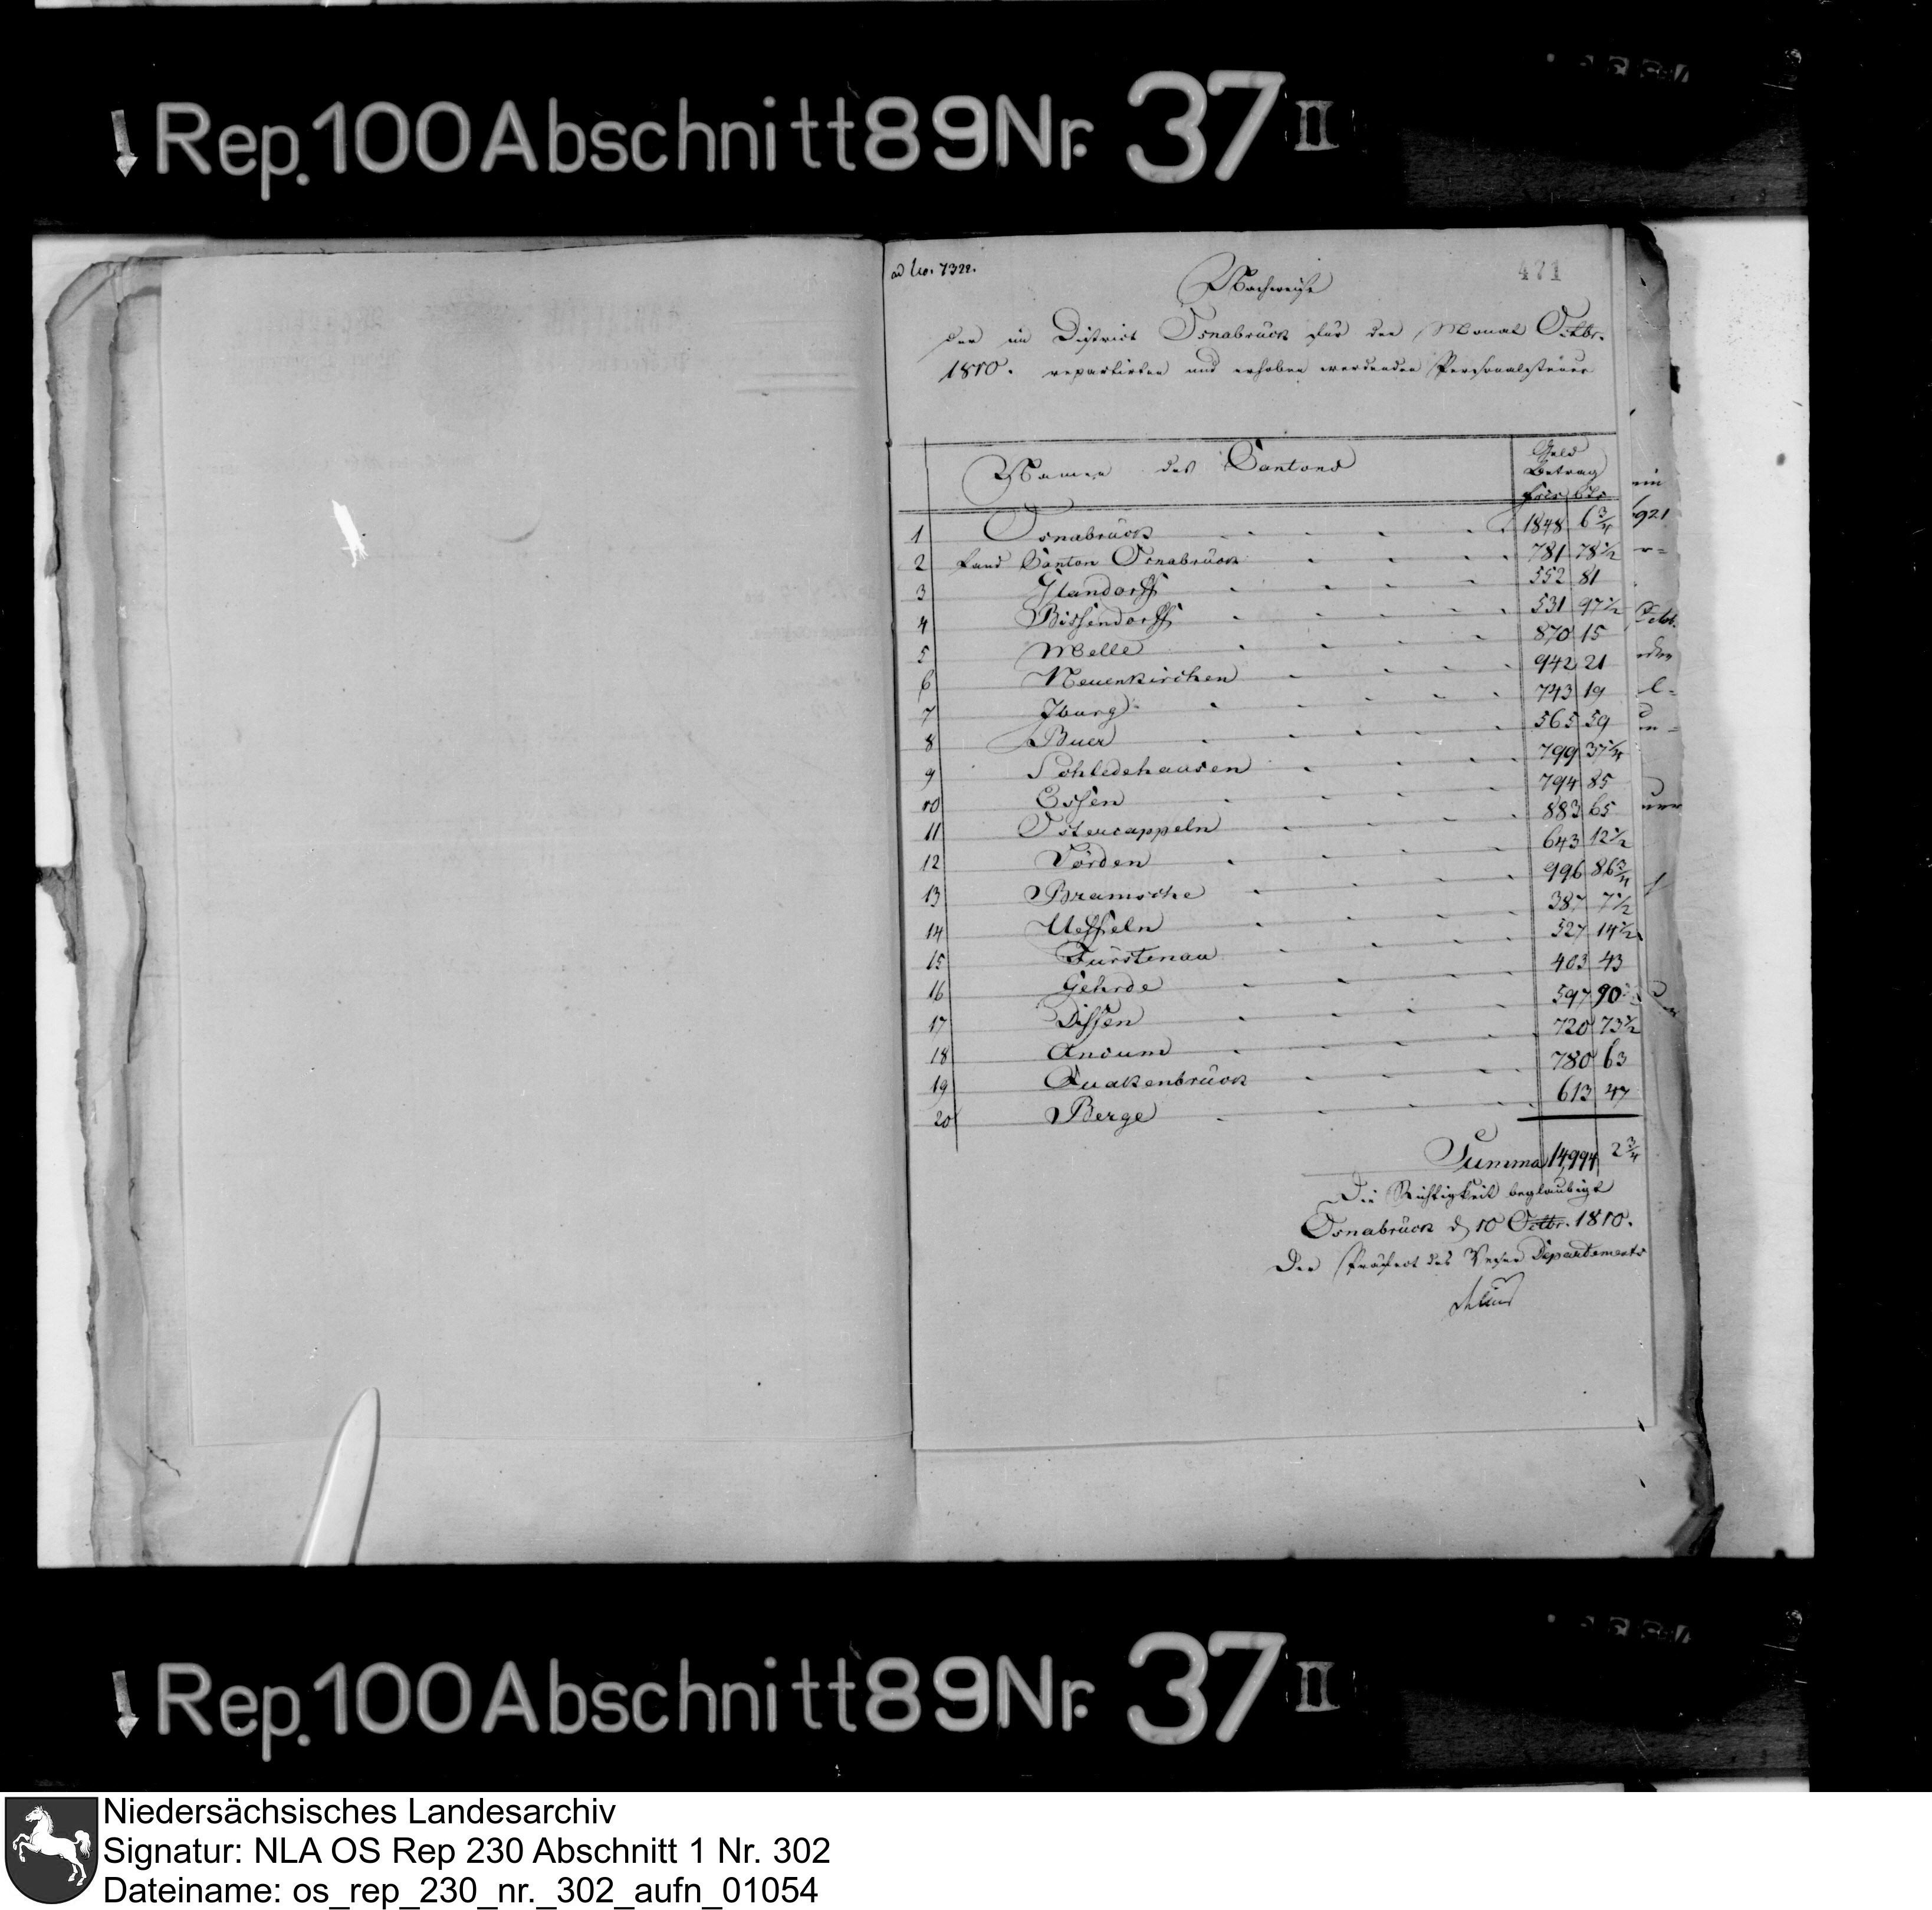 Rep. 100 Abschnitt 89 Nr. 37 II
ad No. 7322.
471
Nachweise
der im District Osnabrück für den Monat Octbr.
1810. repartirten und erhoben werdenden Personalsteuer
Namen des Cantons Geld Betrag
frcs cts
1 Osnabrück 1848 6 3/4
2 Land Canton Osnabrück 781 78 1/2
3 Glandorff 552 81
4 Bissendorff 531 97 1/2
5 Melle 870 15
6 Neuenkirchen 942 21
7 Iburg 743 19
8 Buer 565 59
9 Schledehausen 799 37 1/4
10 Essen 794 85
11 Ostercappeln 883 65
12 Vörden 643 12 1/2
13 Bramsche 996 86 3/4
14 Ueffeln 387 7 1/2
15 Fürstenau 527 14 1/2
16 Gehrde 403 43
17 Dissen 597 90
18 Ancum 720 73 1/2
19 Quakenbrück 780 63
20 Berge 613 47
Summa 14,994 2 3/4
Die Richtigkeit beglaubigt
Osnabrück d 10 Octbr. 1810.
Der Präfect des Weser Departements
Rep. 100 Abschnitt 89 Nr. 37 II
Niedersächsisches Landesarchiv
Signatur: NLA OS Rep 230 Abschnitt 1 Nr. 302
Dateiname: os_rep_230_nr._302_aufn_01054